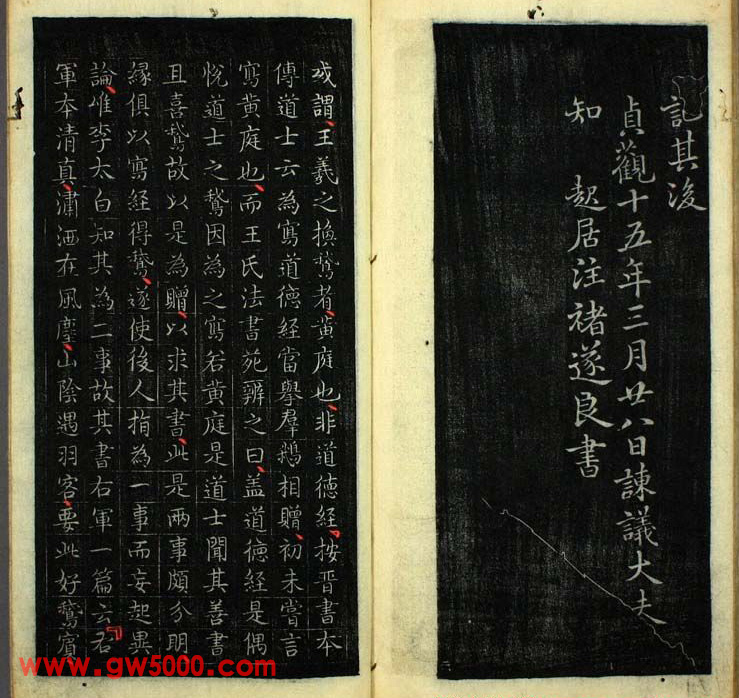 記其後
貞觀十五年三月廿八日諫議大夫
知 起居注褚遂良書
或謂王羲之換鵞者黃庭也非道德經按晉書本
傳道士云為寫道德經當舉羣鵝相贈初未嘗言
寫黃庭也而王氏法書苑辨之曰盖道德經是偶
悅道士之鵞因為之寫若黃庭是道士聞其善書
且喜鵞故以是為贈以求其書此是兩事頗分明
緣俱以寫經得鵞遂使後人指為一事而妄起異
論唯李太白知其為二事故其書右軍一篇云右
軍本清真瀟洒在風塵山陰遇羽客要此好鵞賓
www.gw5000.com